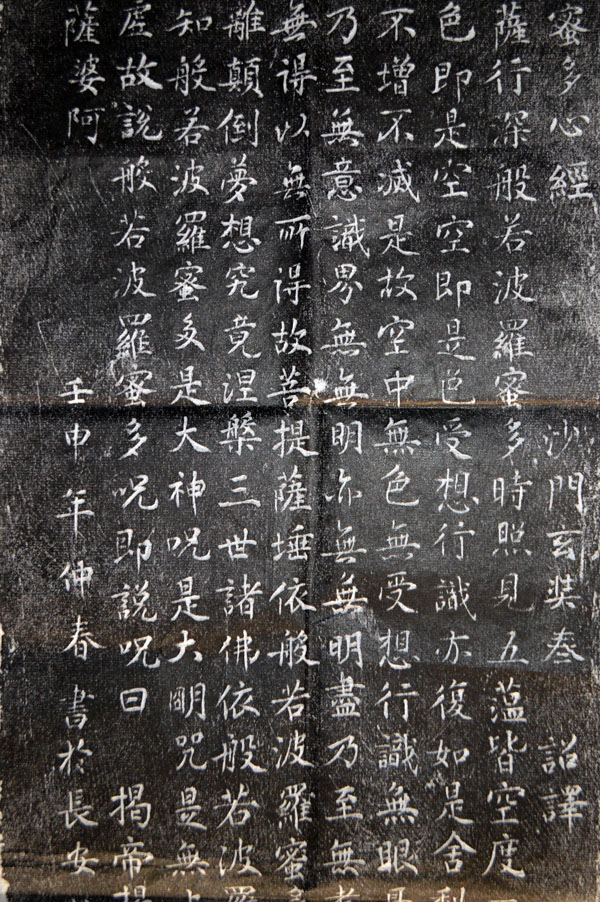 蜜多心經 沙門玄奘奉 詔譯
薩行深般若波羅蜜多時照見五蘊皆空度
色即是空空即是色受想行識亦復如是舍利
不增不減是故空中無色無受想行識無眼
乃至無意識界無無明亦無無明盡乃至無老
無得以無所得故菩提薩埵依般若波羅蜜多
離顛倒夢想究竟涅槃三世諸佛依般若波羅
知般若波羅蜜多是大神呪是大明咒是無上
虛故說般若波羅蜜多呪即說呪曰 揭帝揭
薩婆阿 壬申年仲春書於長安